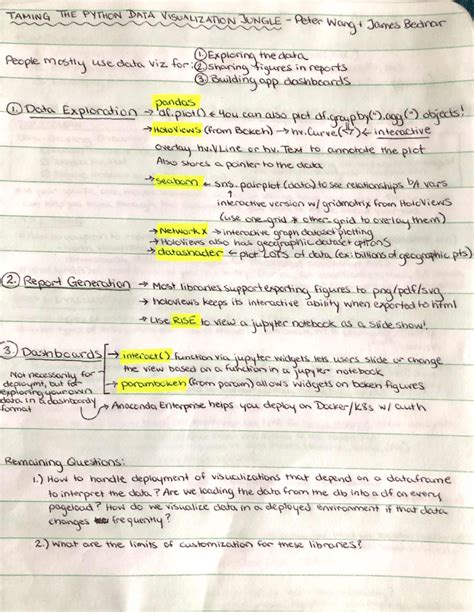 TAMING THE PYTHON DATA VISUALIZATION JUNGLE - Peter Wang + James Bednar
① Exploring the data
People mostly use data viz for: ② Sharing figures in reports
③ Building app dashboards
① Data Exploration → pandas
df.plot() ← You can also plot df.groupby(~).agg(~) objects!
→ HoloViews (from Bokeh) → hv.Curve(~) ← interactive
overlay hv.VLine or hv.Text to annotate the plot
Also stores a pointer to the data
→ seaborn ← sns.pairplot(data) to see relationships b/t vars
↑
interactive version w/ gridmatrix from HoloViews
(use one-grid * other-grid to overlay them)
→ NetworkX → interactive graph dataset plotting
→ HoloViews also has geographic dataset options
→ datashader ← plot LOTS of data (ex: billions of geographic pts)
② Report Generation → Most libraries support exporting figures to png/pdf/svg
→ holoviews keeps its interactive ability when exported to html
→ Use RISE to view a jupyter notebook as a slideshow!
③ Dashboards → interact() function via jupyter widgets lets users slide or change
the view based on a function in a jupyter notebook
Not necessarily for
deploymt, but for
exploring your own
data in a dashboardy
format
→ parambokeh (from param) allows widgets on bokeh figures
→ Anaconda Enterprise helps you deploy on Docker/K8s w/ auth
Remaining Questions:
1.) How to handle deployment of visualizations that depend on a dataframe
to interpret the data? Are we loading the data from the db into a df on every
pageload? How do we visualize data in a deployed environment if that data
changes frequently?
2.) What are the limits of customization for these libraries?